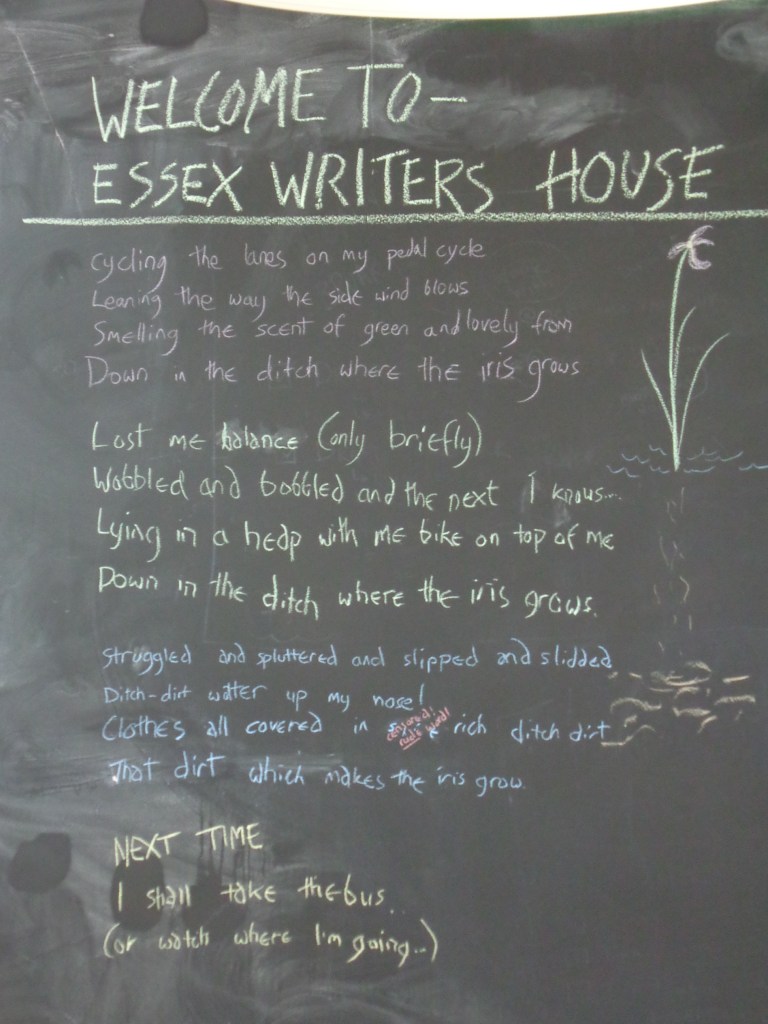 WELCOME TO-
ESSEX WRITERS HOUSE
Cycling the lanes on my pedal cycle
Leaning the way the side wind blows
Smelling the scent of green and lovely from
Down in the ditch where the iris grows
Lost me balance (only briefly)
Wobbled and bobbled and the next I knows...
Lying in a heap with me bike on top of me
Down in the ditch where the iris grows.
Struggled and spluttered and slipped and slidded
Ditch-dirt water up my nose!
Clothes all covered in censored! rude word! rich ditch dirt
That dirt which makes the iris grow.
NEXT TIME
I shall take the bus..
(or watch where I'm going...)